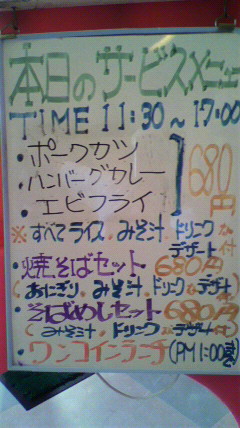 本日のサービスメニュー
TIME 11:30～17:00
・ポークカツ
・ハンバーグカレー
・エビフライ
680円
※すべてライス・みそ汁・ドリンク
デザート付
・焼そばセット 680円
(おにぎり・みそ汁・ドリンク デザート付)
・そばめしセット 680円
(みそ汁・ドリンク デザート付)
・ワンコインランチ(PM1:00まで)